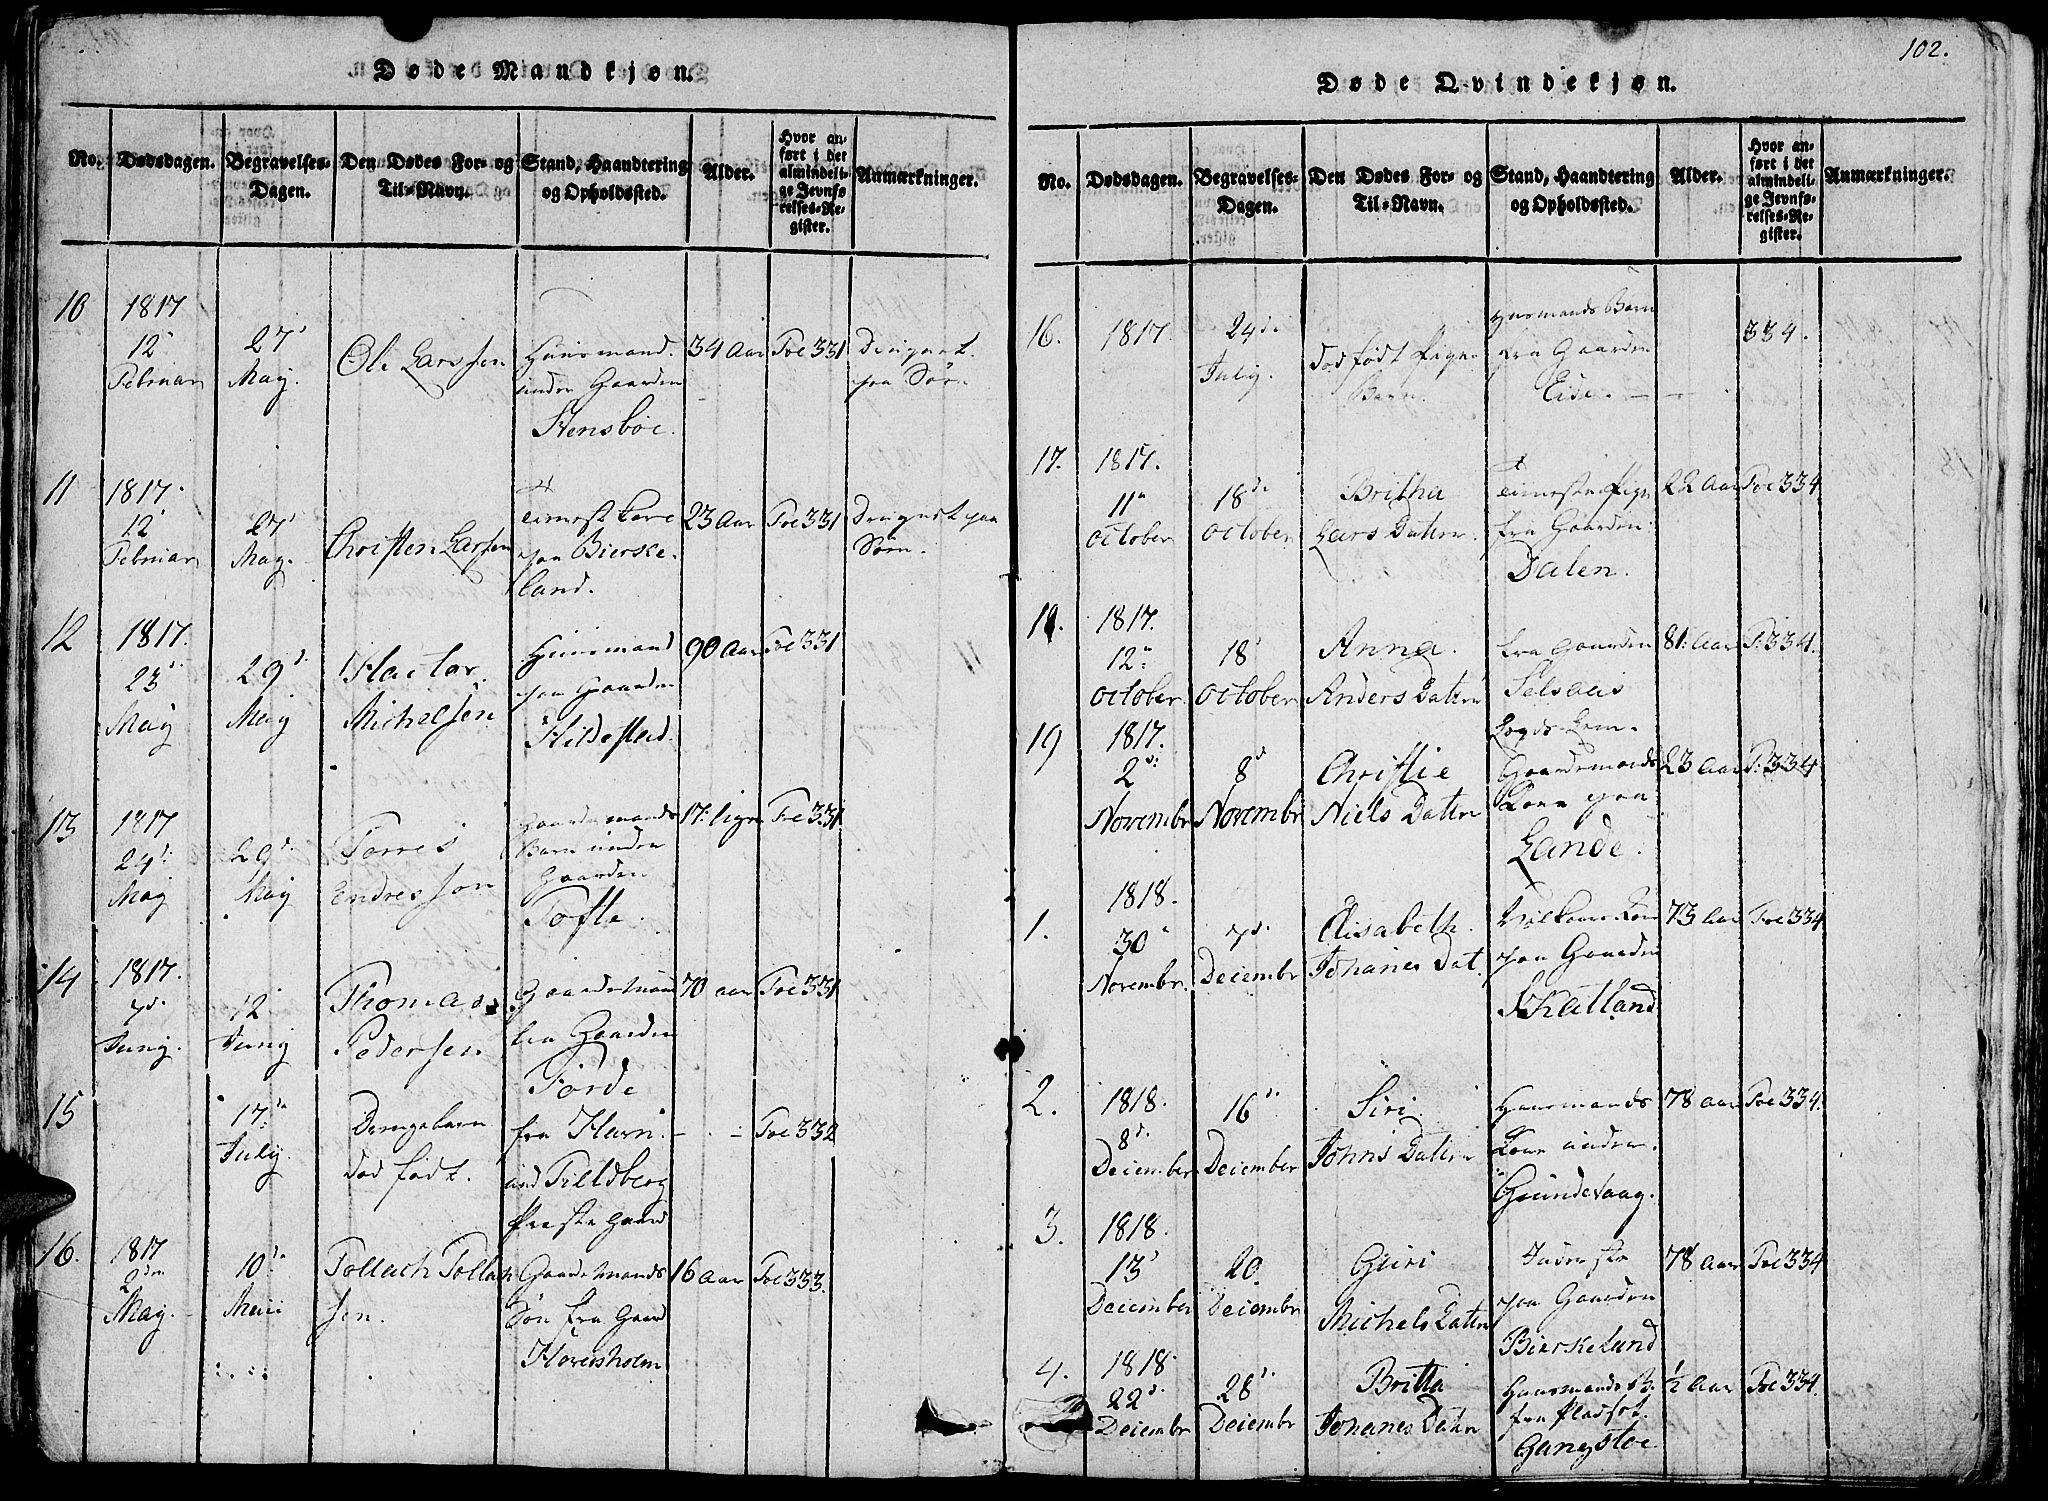 Døde Mandkjøn.
No.
Dødsdagen.
Begravelses-
Dagen.
Den Dødes For- og
Til-Navn.
Stand, Haandtering
og Opholdssted.
Alder.
Hvor an-
ført i det
almindeli-
ge Jevnfø-
relses-Re-
gister.
Anmærkninger.
10
1817
12
Februar
27
May.
Ole Larssen
Huusmand
under Gaarden
Stensböe.
34 Aar
Foe 331
paa
11
1817.
12
Februar
27
May.
Christen Larsen
paa Bierke-
land.
23 Aar
Foe 331
paa
12
1817.
23
May
29
May
Michelsen
Huusmand
paa Gaarden
Hildestad.
90 Aar
Foe 331
13
1817
24
May
29
May
Torres
Endressøn
Gaardemands
Barn under
Gaarden
Tofte.
17:
Foe 331
14
1817.
7d.
Juny.
12
Juny
Thomas
Pedersen
Gaardemand
fra Gaarden
Förde
70 aar
Foe 331
15
17de
July.
Drengebarn
död födt.
fra
Prestegaard
Foe 332
16.
1817
2den
May.
10de
Tollach Tollach
sen.
Gaardemands
Søn fra Gaard
16 aar
Foe 333.
102.
Døde Qvindekjøn.
No.
Dødsdagen.
Begravelses-
Dagen.
Den Dødes For- og
Til-Navn.
Stand, Haandtering
og Opholdssted.
Alder.
Hvor an-
ført i det
almindeli-
ge Jevnfø-
relses-Re-
gister.
Anmærkninger.
16.
1817.
24de
July.
dödfödt Pige
Barn.
Huusmands Barn
fra Gaarden
Eide.
334.
17.
1817.
11
October
18de
October
Britha
Lars Datter
fra Gaarden
Dalen.
22 Aar
Foe 334
1817.
12
October
18
October
Anna.
Anders Datter
fra Gaarden
Selsaas
81: Aar
F: 334.
19
1817.
2d:
Novembr
8d
Novembr
Christie
Niels Datter
Gaardemands
Kone paa
Lande.
23 Aar
F: 334
1.
1818.
30
Novembr.
7d.
Decembr
Elisabeth.
Johanes Dat.
paa Gaarden
Skailand
73 Aar
Foe 334
2.
1818.
8d.
December
16
December
Siri
Johns Datter
Huusmands
Kone under
Grundevaag.
78 Aar
Foe 334.
3.
1818.
13
December
20.
Decembr
Guri
Michels Datter
paa Gaarden
Bierkelund
78 Aar
Foe 334
4.
1818
22d.
Decembr
28
Decembr
Britta
Johanes Datter
Huusmands B.
fra Pladset
Gangstoe
½ Aar
Foe 334.